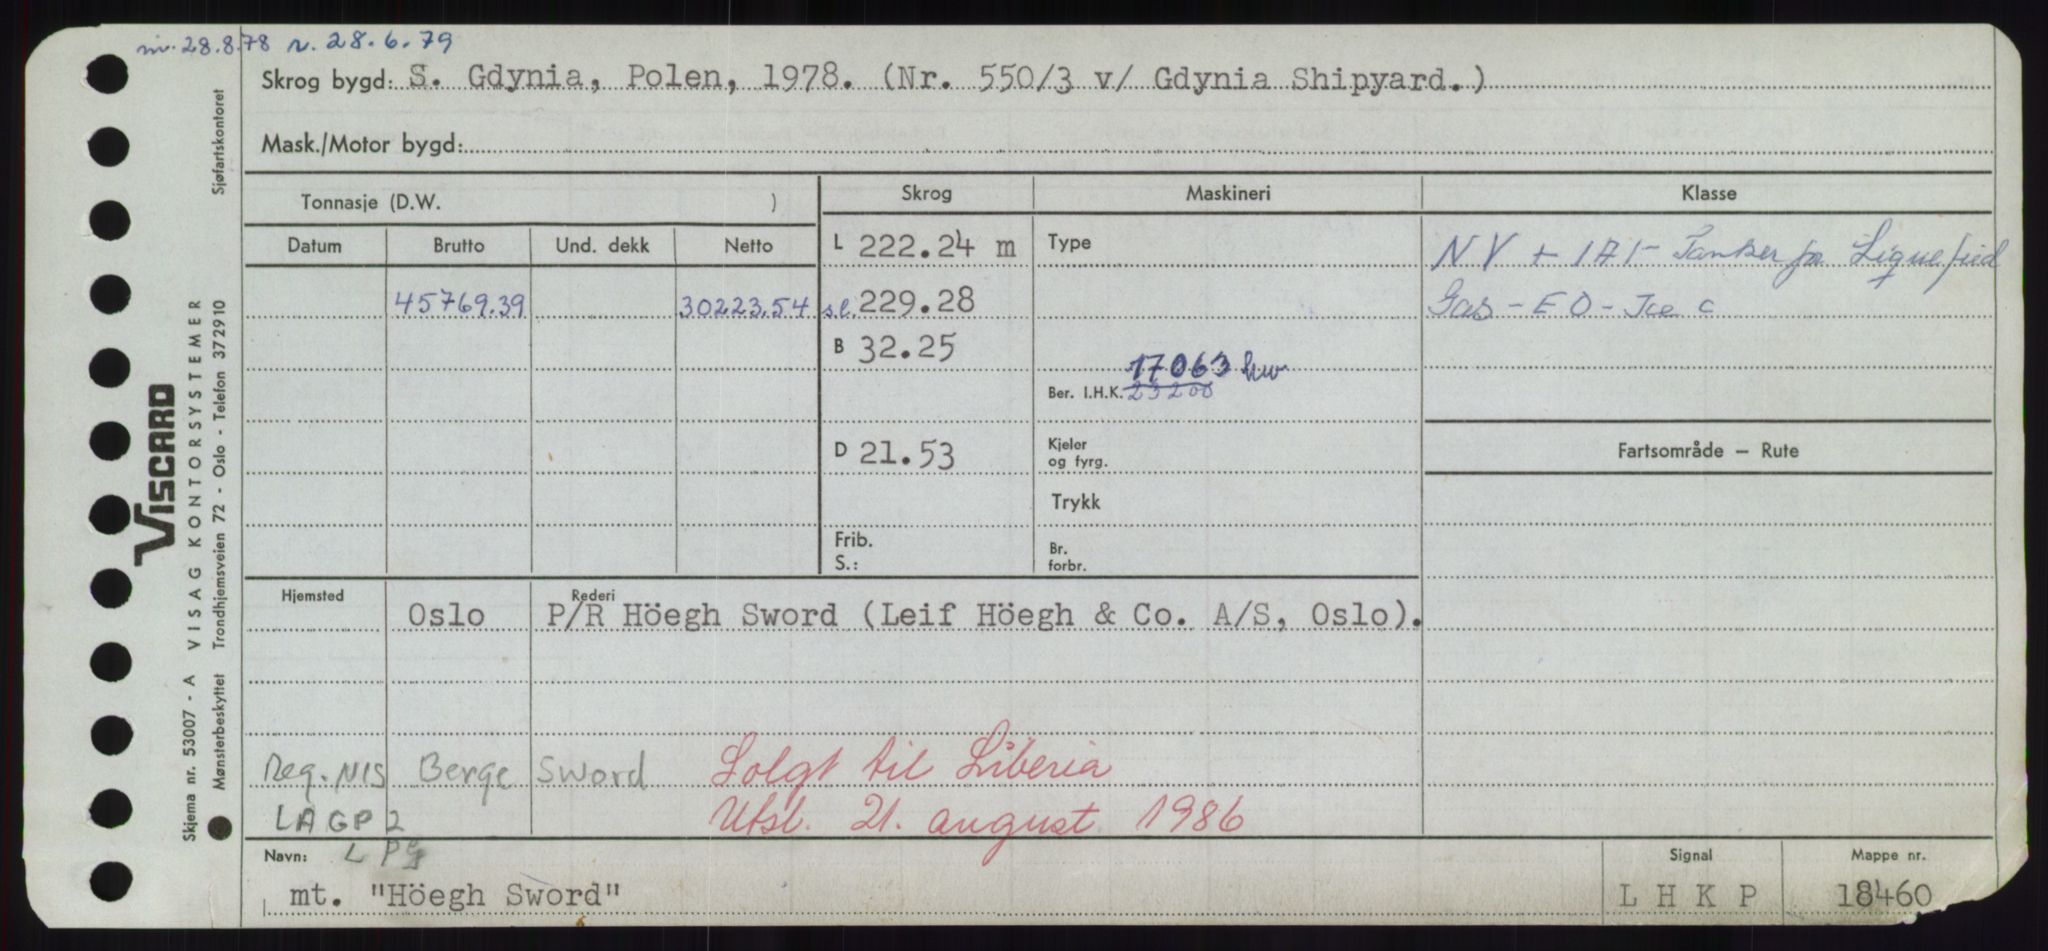 nv. 28.8.78 r. 28.6.79
Skrog bygd: S. Gdynia, Polen, 1978. (Nr. 550/3 v/ Gdynia Shipyard.)
Mask./Motor bygd:
Tonnasje (D.W. ) Skrog Maskineri Klasse
Datum Brutto Und. dekk Netto L 222.24 m Type NV + 1A1 - Tanker for Liquefied
45769.39 30223.54 s.l. 229.28 Gas - EO - Ice C
B 32.25
17063 kw
Ber. I.H.K. 23200
D 21.53 Kjeler og fyrg. Fartsområde — Rute
Trykk
Frib. S.: Br. forbr.
Hjemsted Rederi
Oslo P/R Höegh Sword (Leif Höegh & Co. A/S, Oslo).
Reg. NIS Berge Sword Solgt til Liberia
LAGP2 Utsl. 21. august 1986
Navn: LPG Signal Mappe nr.
mt. "Höegh Sword" L H K P 18460
VISCARD
Skjema nr. 53007 - A VISAG KONTORSYSTEMER Sjøfartskontoret
Mønsterbeskyttet Trondhjemsveien 72 - Oslo - Telefon 372910